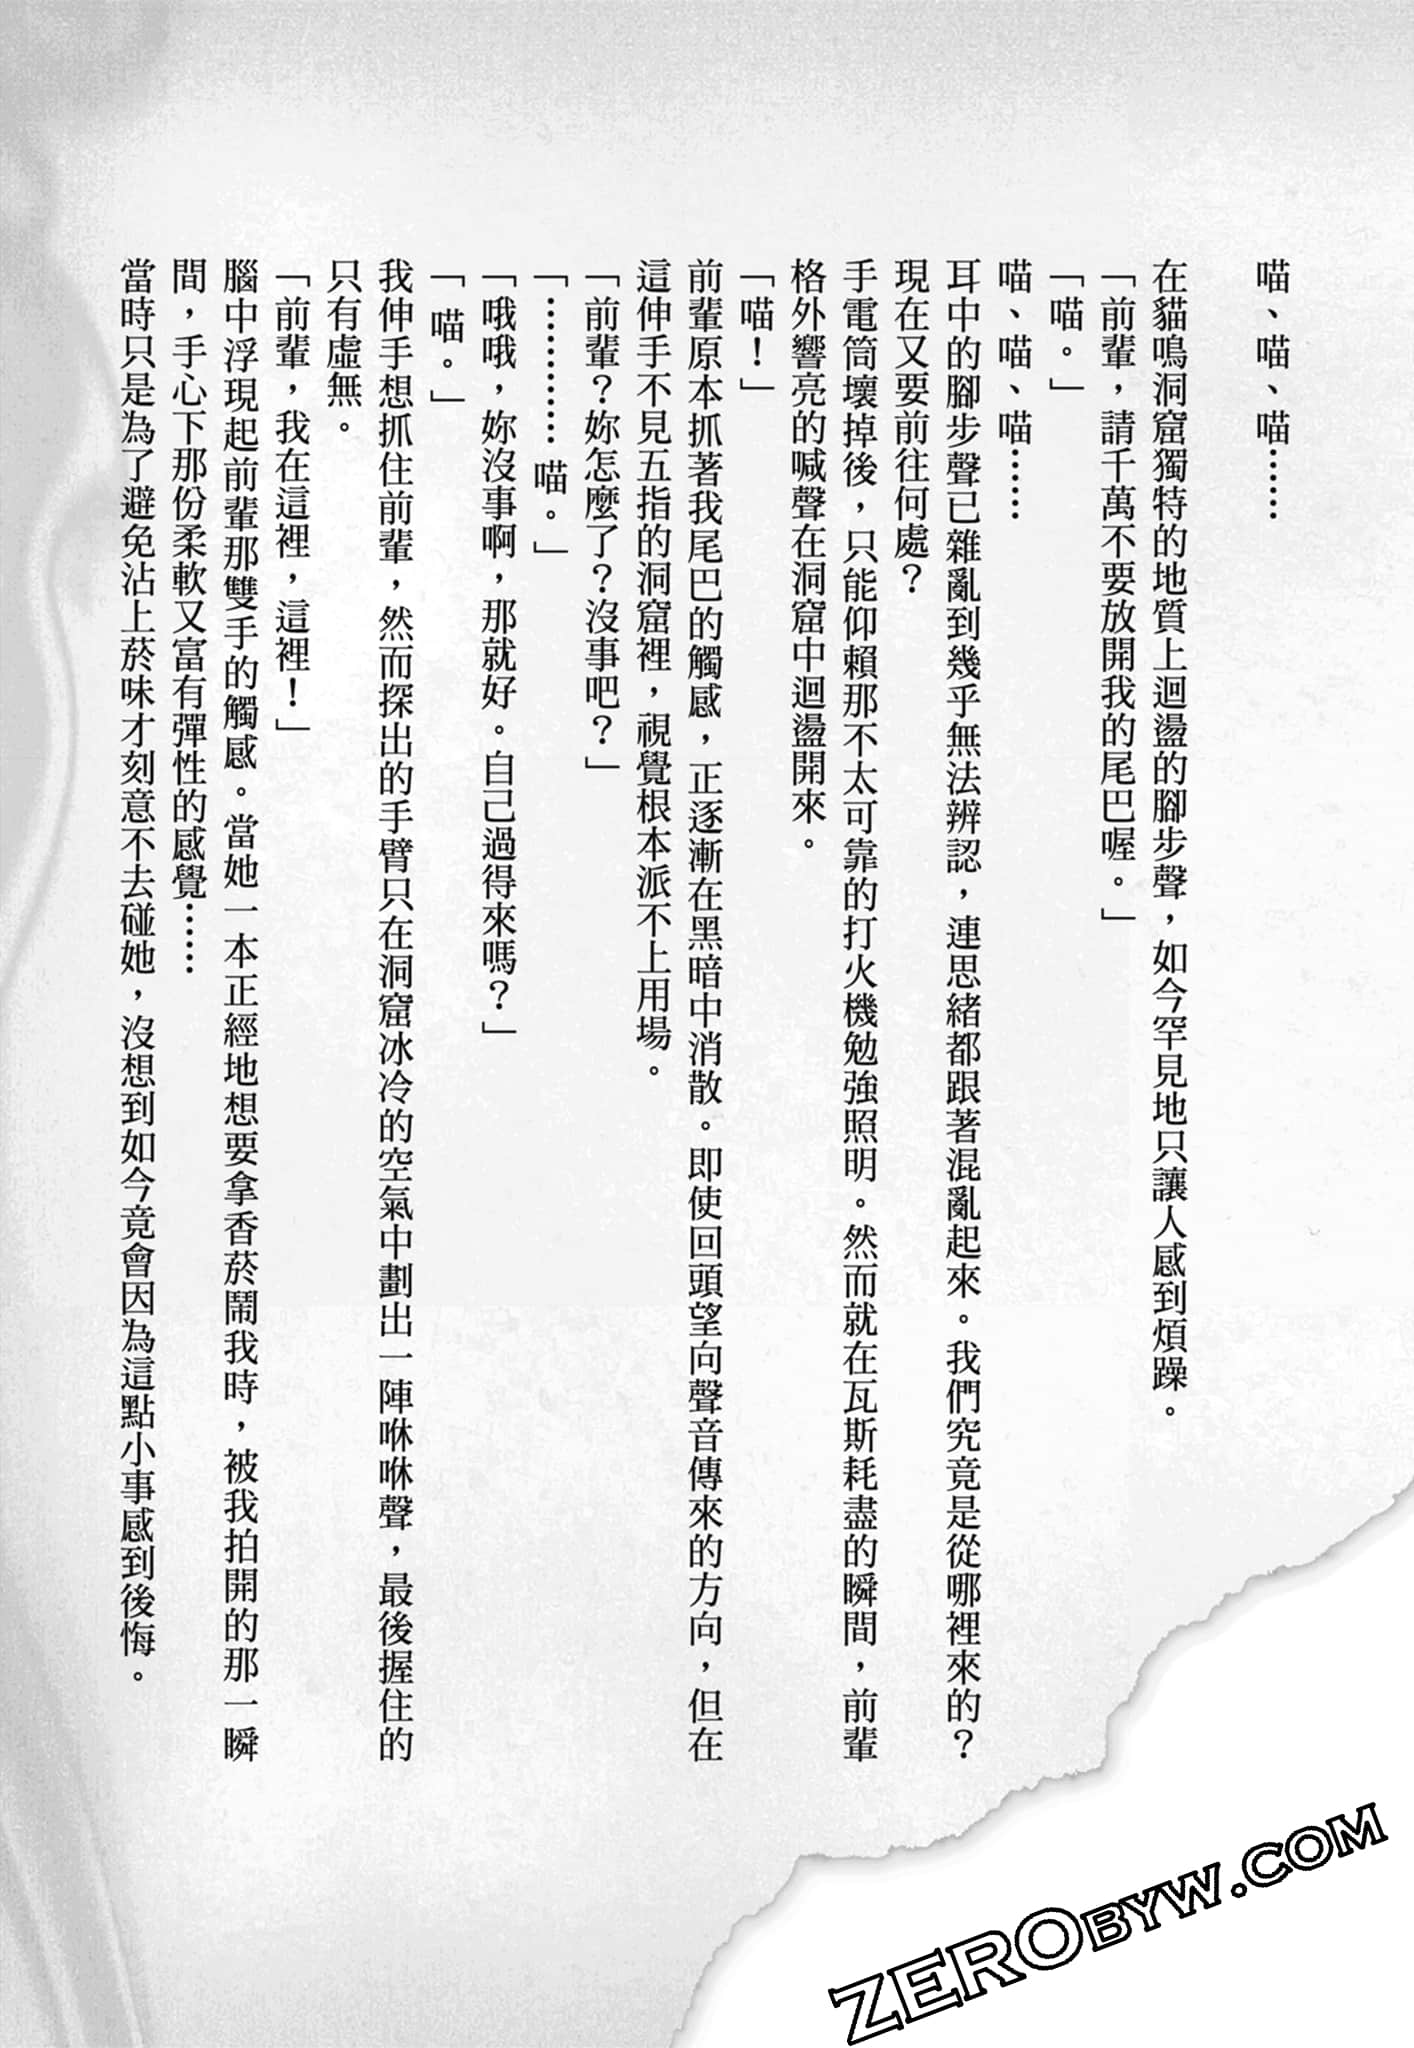 喵、喵、喵……
在貓鳴洞窟獨特的地質上迴盪的腳步聲，如今罕見地只讓人感到煩躁。
「前輩，請千萬不要放開我的尾巴喔。」
「喵。」
喵、喵、喵……
耳中的腳步聲已雜亂到幾乎無法辨認，連思緒都跟著混亂起來。我們究竟是從哪裡來的？
現在又要前往何處？
手電筒壞掉後，只能仰賴那不太可靠的打火機勉強照明。然而就在瓦斯耗盡的瞬間，前輩
格外響亮的喊聲在洞窟中迴盪開來。
「喵！」
前輩原本抓著我尾巴的觸感，正逐漸在黑暗中消散。即使回頭望向聲音傳來的方向，但在
這伸手不見五指的洞窟裡，視覺根本派不上用場。
「前輩？妳怎麼了？沒事吧？」
「…………喵。」
「哦哦，妳沒事啊，那就好。自己過得來嗎？」
「喵。」
我伸手想抓住前輩，然而探出的手臂只在洞窟冰冷的空氣中劃出一陣咻咻聲，最後握住的
只有虛無。
「前輩，我在這裡，這裡！」
腦中浮現起前輩那雙手的觸感。當她一本正經地想要拿香菸鬧我時，被我拍開的那一瞬
間，手心下那份柔軟又富有彈性的感覺……
當時只是為了避免沾上菸味才刻意不去碰她，沒想到如今竟會因為這點小事感到後悔。
ZEROBYW.COM